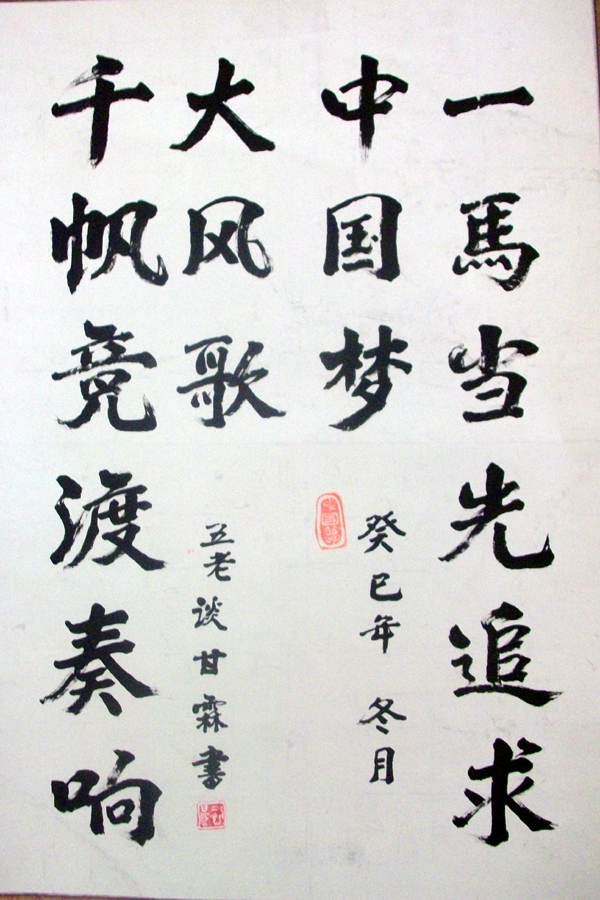 一馬当先追求
中国梦
癸巳年 冬月
千帆竞渡奏响
大风歌
五老谈甘霖書